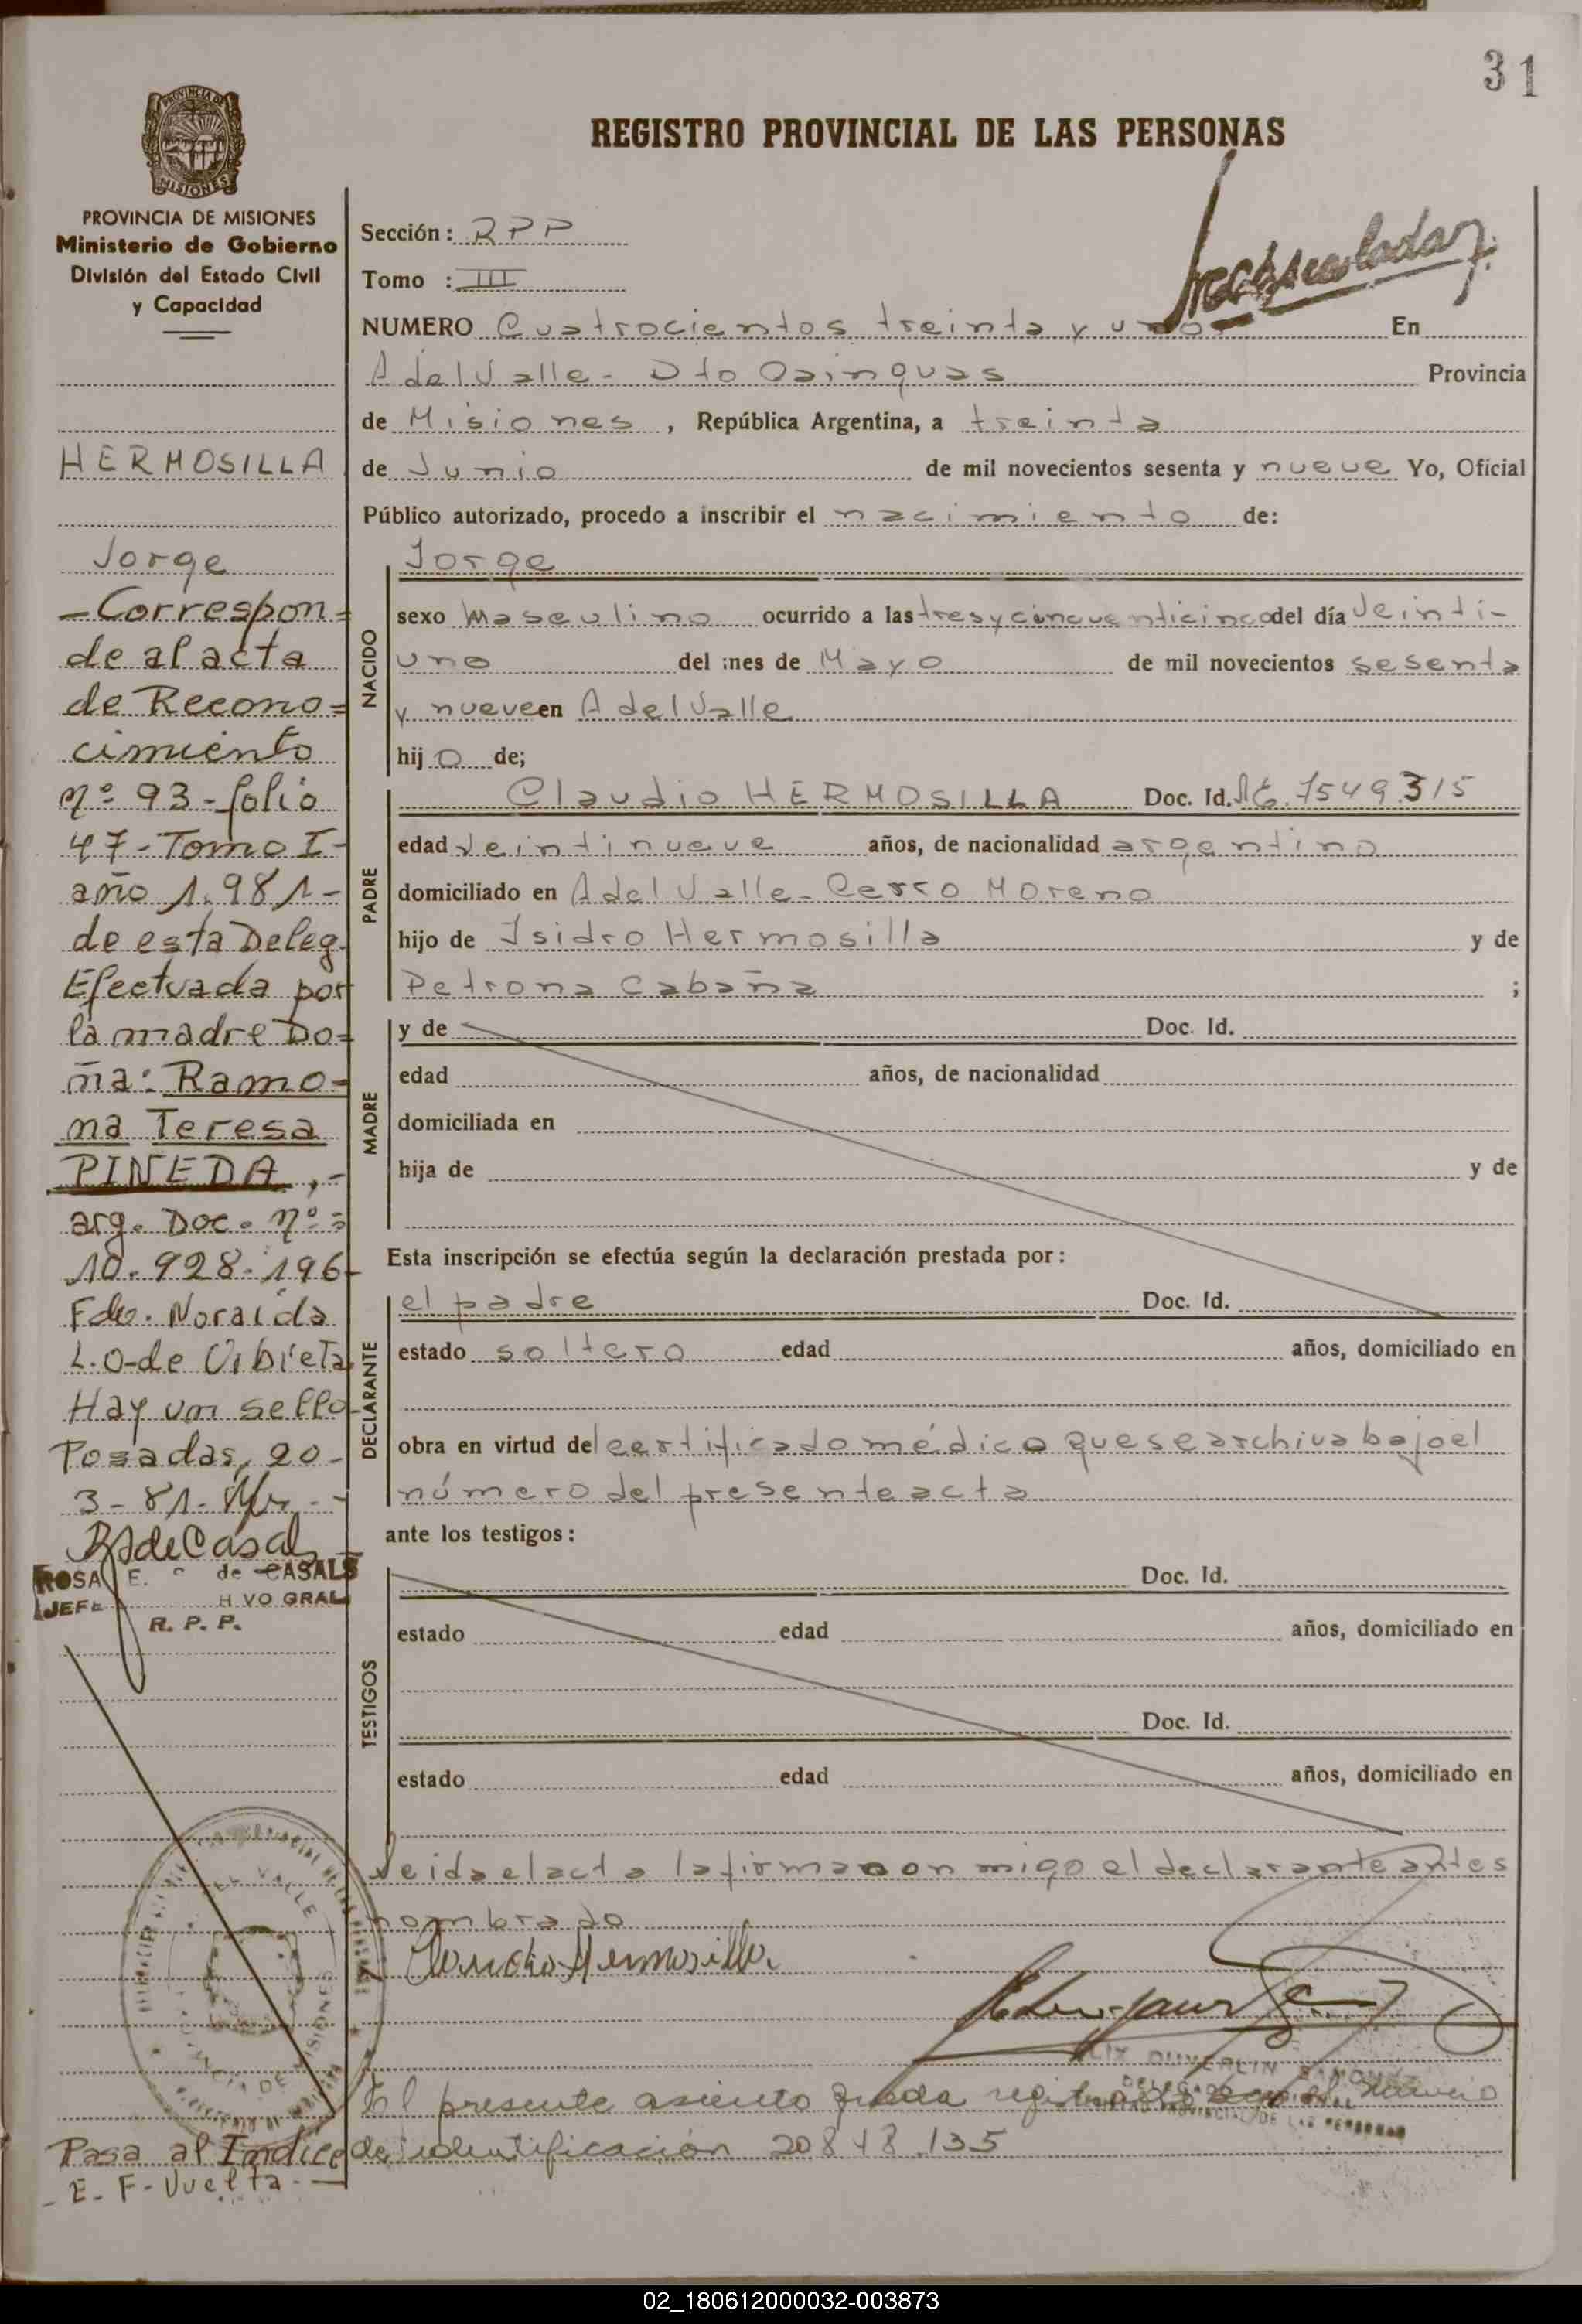 31
REGISTRO PROVINCIAL DE LAS PERSONAS
PROVINCIA DE MISIONES
PROVINCIA DE MISIONES
Ministerio de Gobierno
División del Estado Civil
y Capacidad
HERMOSILLA
Jorge
- Correspon=
de al acta
de Recono=
cimiento
nº 93 - folio
47 - Tomo I -
año 1.981 -
de esta Deleg.
Efectuada por
la madre Do=
ña: Ramo=
na Teresa
PINEDA,-
arg. Doc. nº =
10.928.196-
Fdo. Noraida
L.O. de Urbieta
Hay un sello
Posadas, 20-
3-81-
R de Casals
ROSA E. de CASALS
JEFE H VO GRAL
R. P. P.
Pasa al Indice
- E. F. Vuelta. -
Sección: RPP
Tomo : III
NUMERO Cuatrocientos treinta y uno En
A del Valle - Dto Cainguas Provincia
de Misiones, República Argentina, a treinta
de Junio de mil novecientos sesenta y nueve Yo, Oficial
Público autorizado, procedo a inscribir el nacimiento de:
NACIDO
Jorge
sexo Masculino ocurrido a las tres y cincuenticinco del día Veinti-
uno del mes de Mayo de mil novecientos sesenta
y nueve en A del Valle
hijo de;
PADRE
Claudio HERMOSILLA Doc. Id. 7549.315
edad Veintinueve años, de nacionalidad argentino
domiciliado en A del Valle - Cerro Moreno
hijo de Isidro Hermosilla y de
Petrona Cabaña ;
MADRE
y de Doc. Id.
edad años, de nacionalidad
domiciliada en
hija de y de
Esta inscripción se efectúa según la declaración prestada por:
DECLARANTE
el padre Doc. Id.
estado soltero edad años, domiciliado en
obra en virtud del certificado médico que se archiva bajo el
número del presente acta
ante los testigos:
TESTIGOS
Doc. Id.
estado edad años, domiciliado en
Doc. Id.
estado edad años, domiciliado en
Leida el acta la firma con migo el declarante antes
nombrado
Claudio Hermosilla
EL VALLE
PROVINCIA DE MISIONES
El presente asiento queda registrado con el número
de identificación 20.848.135
02_180612000032-003873